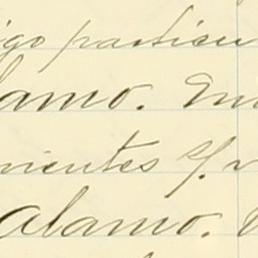 igo particu
alamo. Em
nientes s/.
alamo.